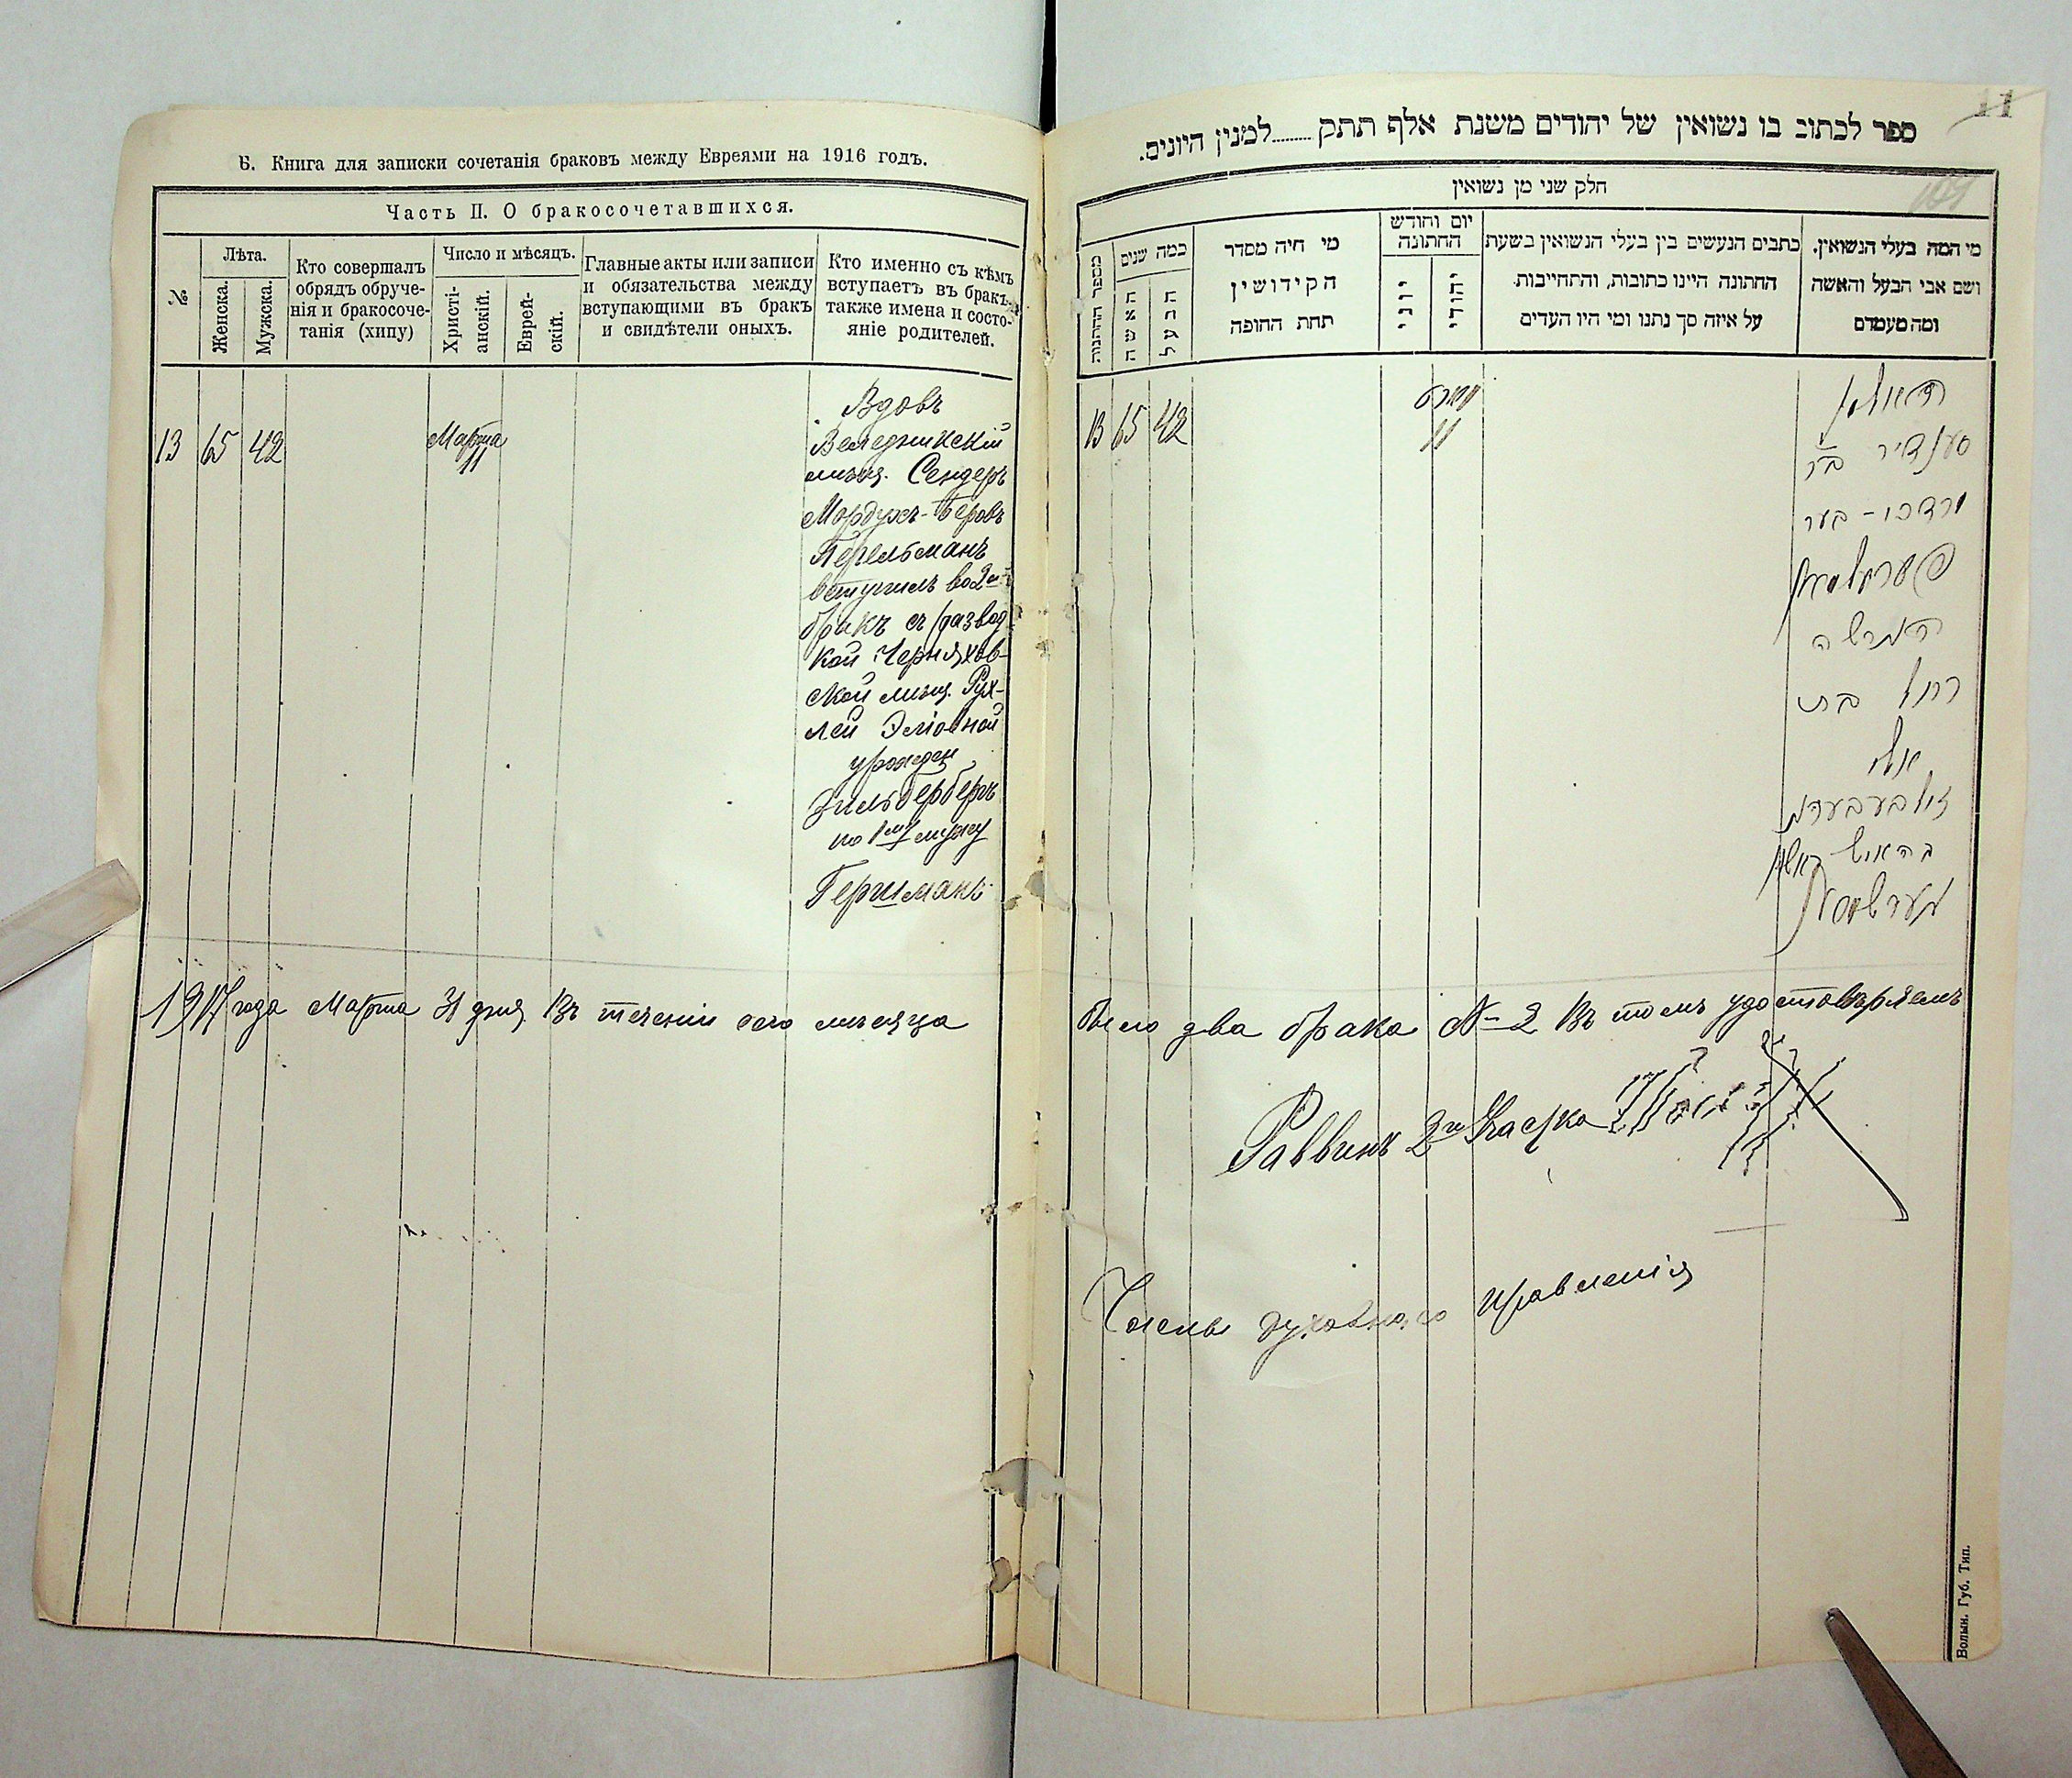 Б. Книга для записки сочетанія браковъ между Евреями на 1916 годъ.
Часть II. О бракосочетавшихся.
№
Лѣта.
Женска.
Мужска.
Кто совершалъ
обрядъ обруче-
нія и бракосоче-
танія (хипу)
Число и мѣсяцъ.
Христі-
анскій.
Еврей-
скій.
Главные акты или записи
и обязательства между
вступающими въ бракъ
и свидѣтели оныхъ.
Кто именно съ кѣмъ
вступаетъ въ бракъ,
также имена и состо-
яніе родителей.
13 65 42
Марта
11
Вдовъ
Веледникскій
мѣщ. Сендеръ
Мордухъ-Беровъ
Перельманъ
вступилъ во 2й
бракъ съ развод
кой Черняхов-
ской мѣщ. Рух-
лей Эліовной
урожден
Зильберберъ
по 1му мужу
Гершманъ
1917 года Марта 31 дня Въ теченіи сего мѣсяца
11
ספר לכתוב בו נשואין של יהודים משנת אלף תתק........למנין היונים.
חלק שני מן נשואין
מי המה בעלי הנשואין.
ושם אבי הבעל והאשה
ומה מעמדם
כתבים הנעשים בין בעלי הנשואין בשעת
החתונה היינו כתובות, והתחייבות
על איזה סך נתנו ומי היו העדים
יום וחודש
החתונה
יהודי
יוני
מי היה מסדר
הקידושין
תחת החופה
כמה שנים
הבעל
האשה
מספר החתונות
13 65 42
מארט
11
האלמן
סענדיר ב״ר
מרדכי - בער
פערעלמאן
הגרושה
רחל בת
אלי
זילבערבערג
מהאיש ראשון
גערשמאן
было два брака № 2 Въ томъ удостовѣряемъ
Раввинъ 2го Участка
Членъ духовнаго правленія
Волын. Губ. Тип.